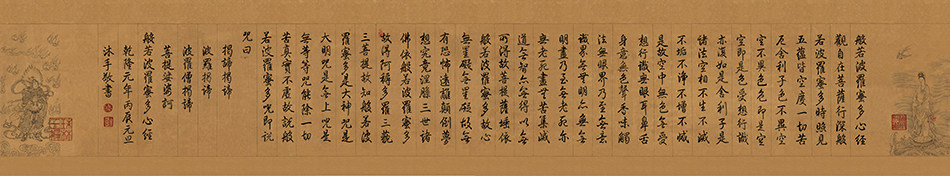 般若波羅蜜多心經
觀自在菩薩行深般
若波羅蜜多時照見
五蘊皆空度一切苦
厄舍利子色不異空
空不異色色即是空
空即是色受想行識
亦復如是舍利子是
諸法空相不生不滅
不垢不淨不增不減
是故空中無色無受
想行識無眼耳鼻舌
身意無色聲香味觸
法無眼界乃至無意
識界無無明亦無無
明盡乃至無老死亦
無老死盡無苦集滅
道無智亦無得以無
所得故菩提薩埵依
般若波羅蜜多故心
無罣礙無罣礙故無
有恐怖遠離顛倒夢
想究竟涅槃三世諸
佛依般若波羅蜜多
故得阿耨多羅三藐
三菩提故知般若波
羅蜜多是大神咒是
大明咒是無上咒是
無等等咒能除一切
苦真實不虛故說般
若波羅蜜多咒即說
咒曰
揭諦揭諦
波羅揭諦
波羅僧揭諦
菩提娑婆訶
般若波羅蜜多心經
乾隆元年丙辰元旦
沐手敬書